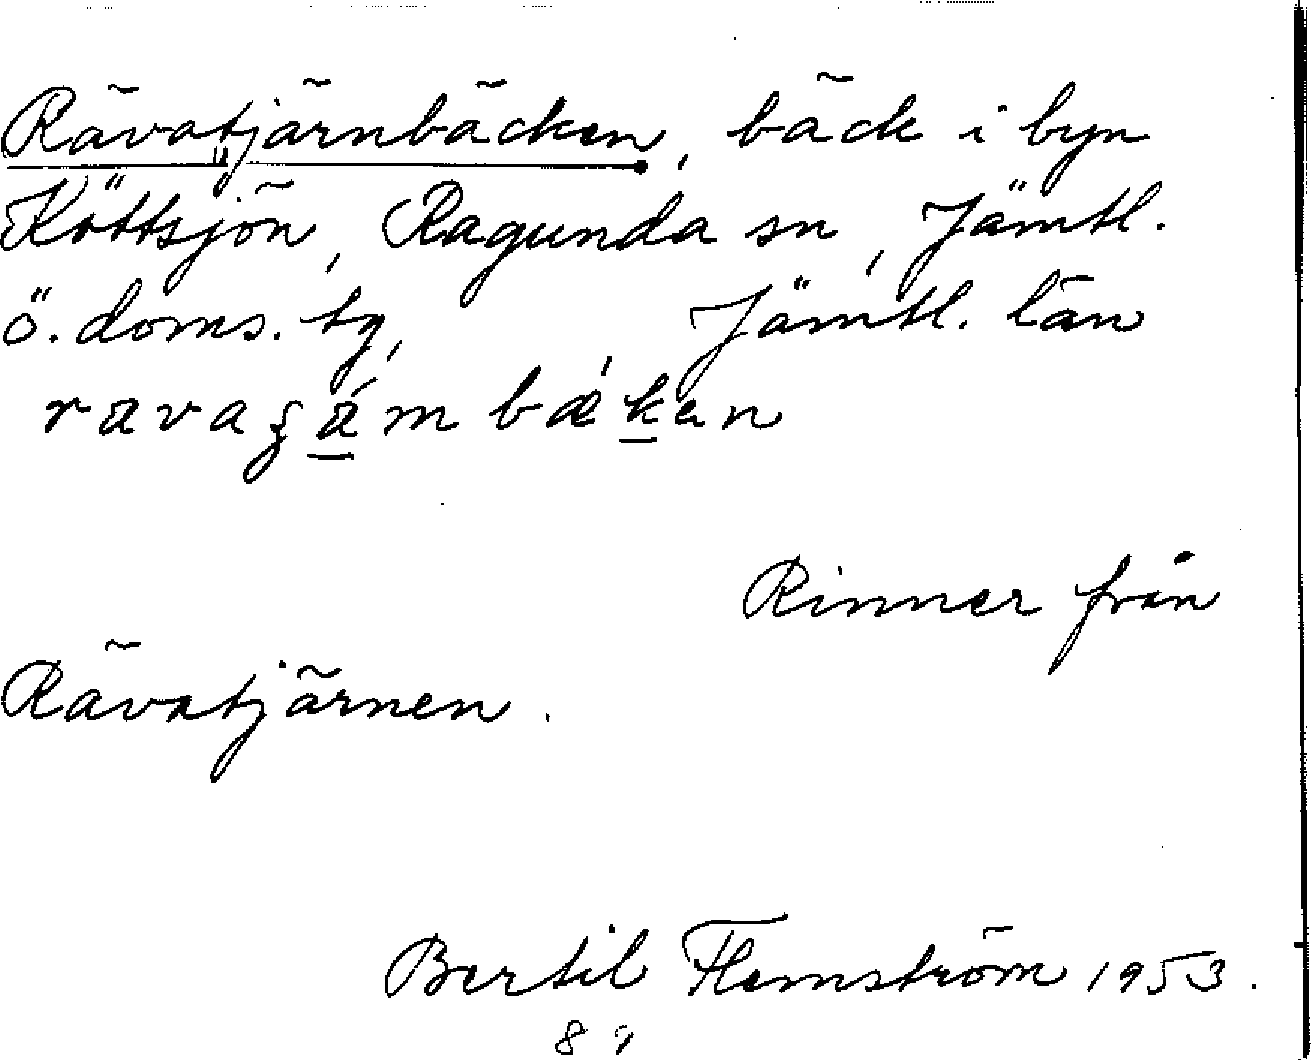 Rävatjärnbäcken, bäck i byn
Köttsjön, Ragunda sn, Jämtl.
ö. doms. tg, Jämtl. län
Rinner från
Rävatjärnen.
Bertil Flemström 1953.
89